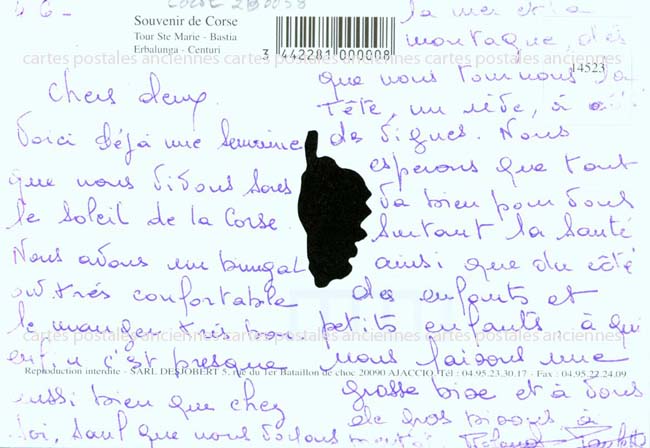 Souvenir de Corse
Tour Ste Marie - Bastia
Erbalunga - Centuri
3 442281 000008
14523
cartes postales anciennes
cartes postales anciennes
Chers deux.
Voici déjà une semaine
que nous vivons sous
le soleil de la Corse.
Nous avons un bungal
ow très confortable
le manger très bon
enfin c'est presque
aussi bien que chez
soi, sauf que nous voyons
la mer et la
montagne, dès
que nous tournons la
tête, un rêve, à côté
des vignes. Nous
esperons que tout
va bien pour vous
surtout la santé
ainsi que du côté
des enfants et
petits enfants à qui
nous faisons une
grosse bise et à vous
de gros bisous à
cartes postales anciennes
cartes postales anciennes
Reproduction interdite - SARL DESJOBERT 5, rue du 1er Bataillon de choc 20090 AJACCIO. Tél : 04.95.23.30.17 - Fax : 04.95.22.24.09